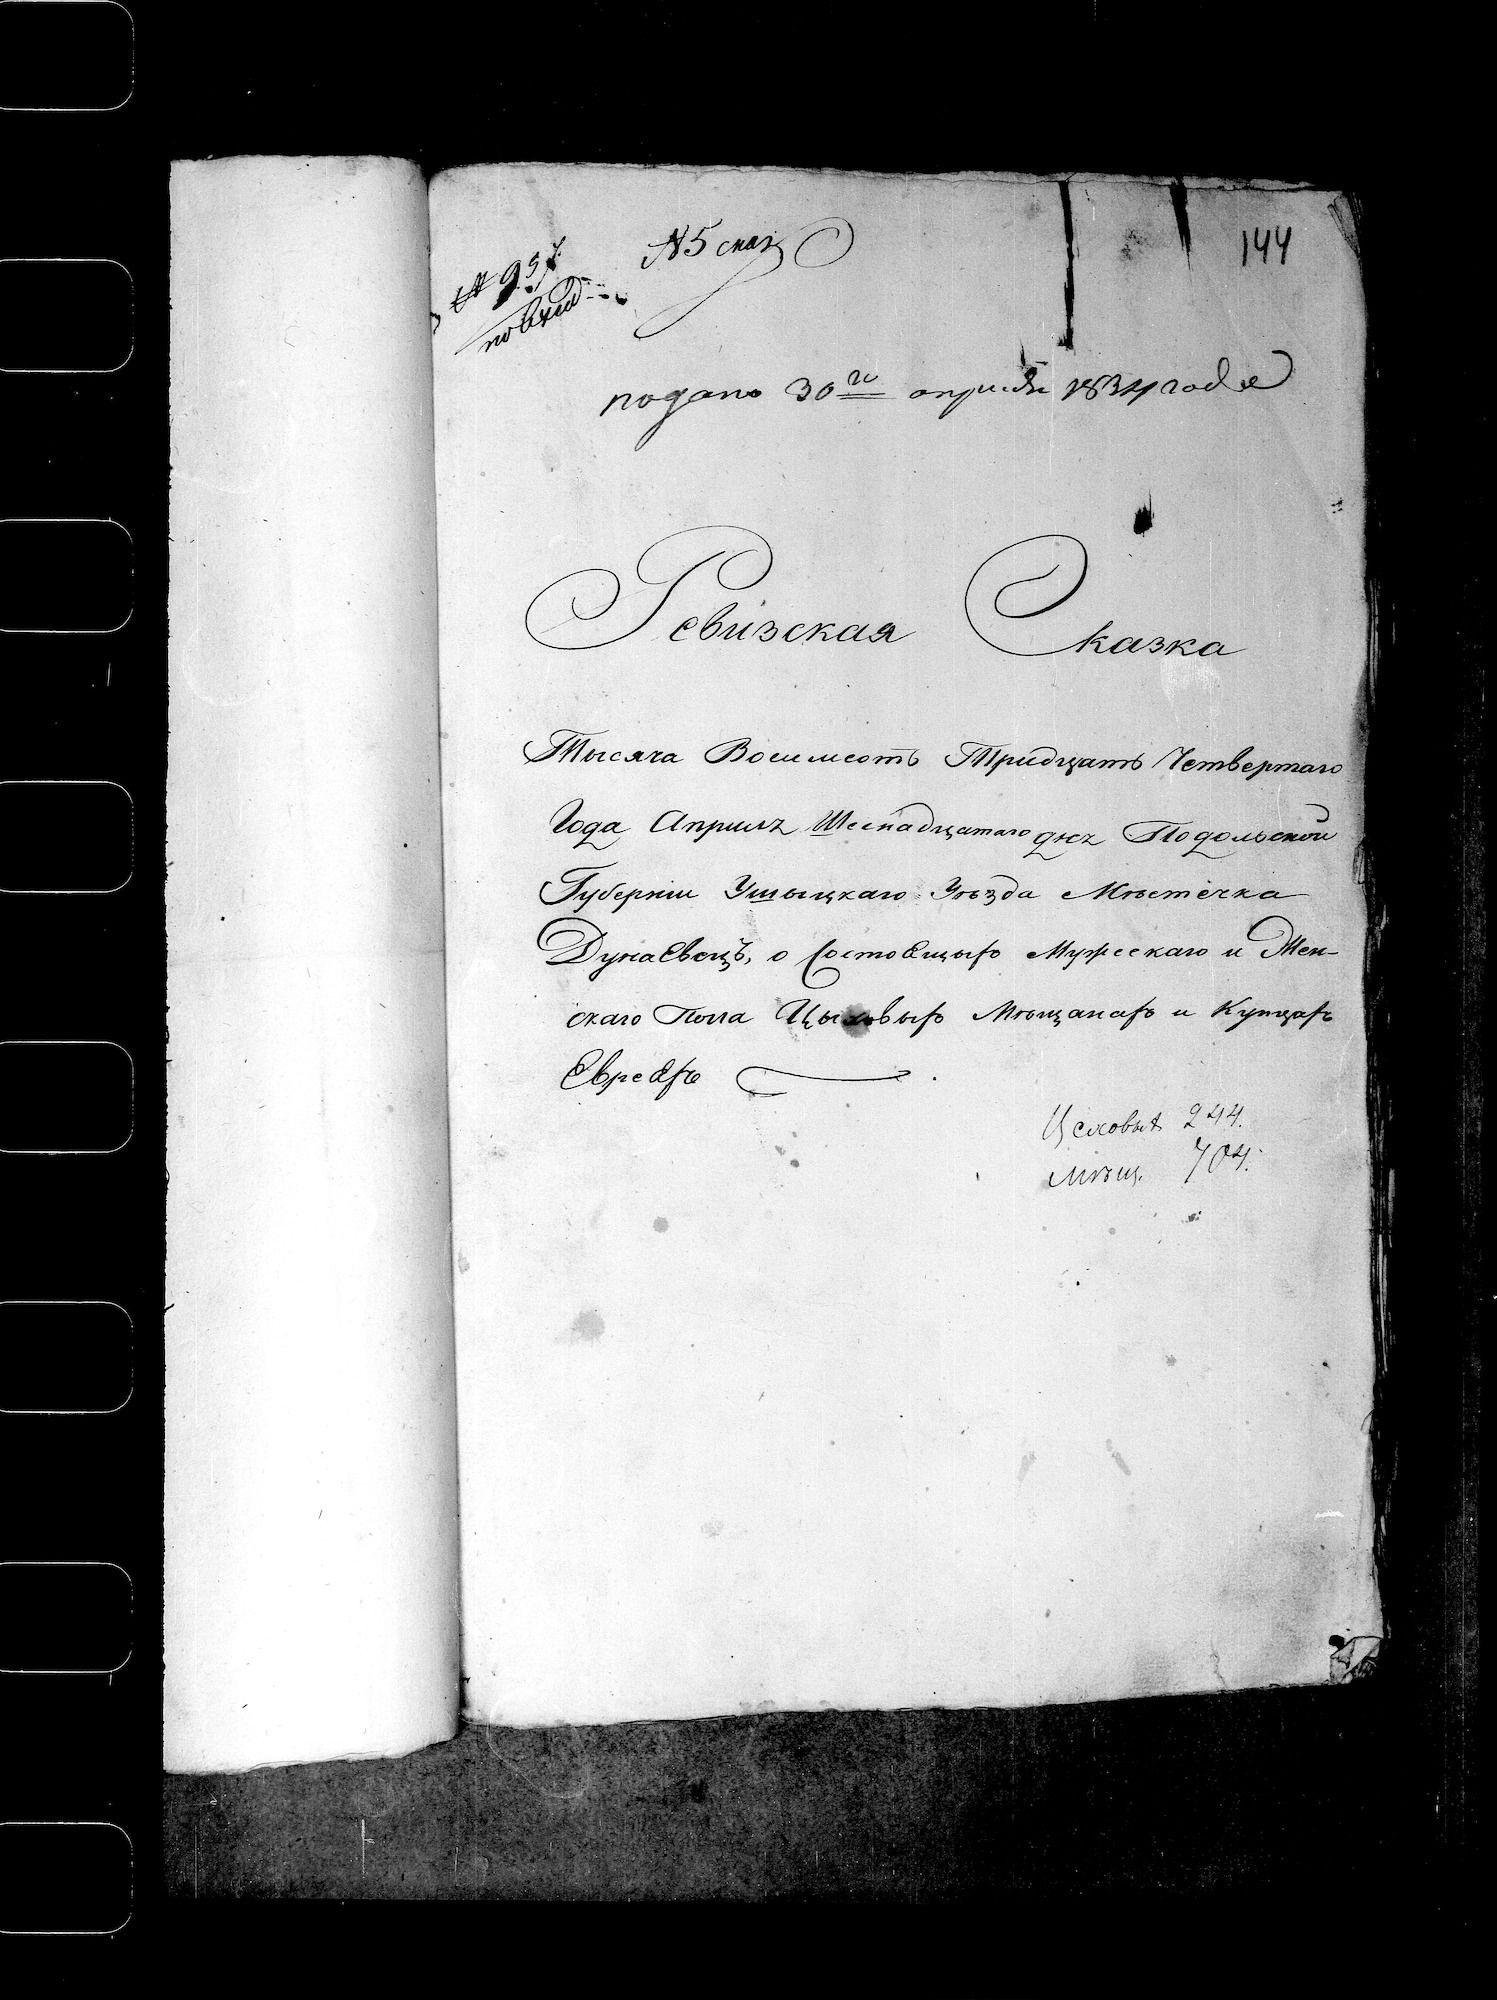 144
№ 5 сказ
№ 957.
по вход
подано 30го апреля 1834 года
Ревизская Сказка
Тысяча Восимсотъ Тридцать Четвертаго
Года Априлъ Шеснадцатаго днъ Подольской
Губерніи Ушыцкаго Уѣзда Мѣстечка
Дунаевецъ, о Состоещыхъ Мужескаго и Жен-
скаго Пола Цыховыхъ Мѣщанахъ и Купцахъ
Евреехъ
Цеховыя 244.
Мѣщ. 704.